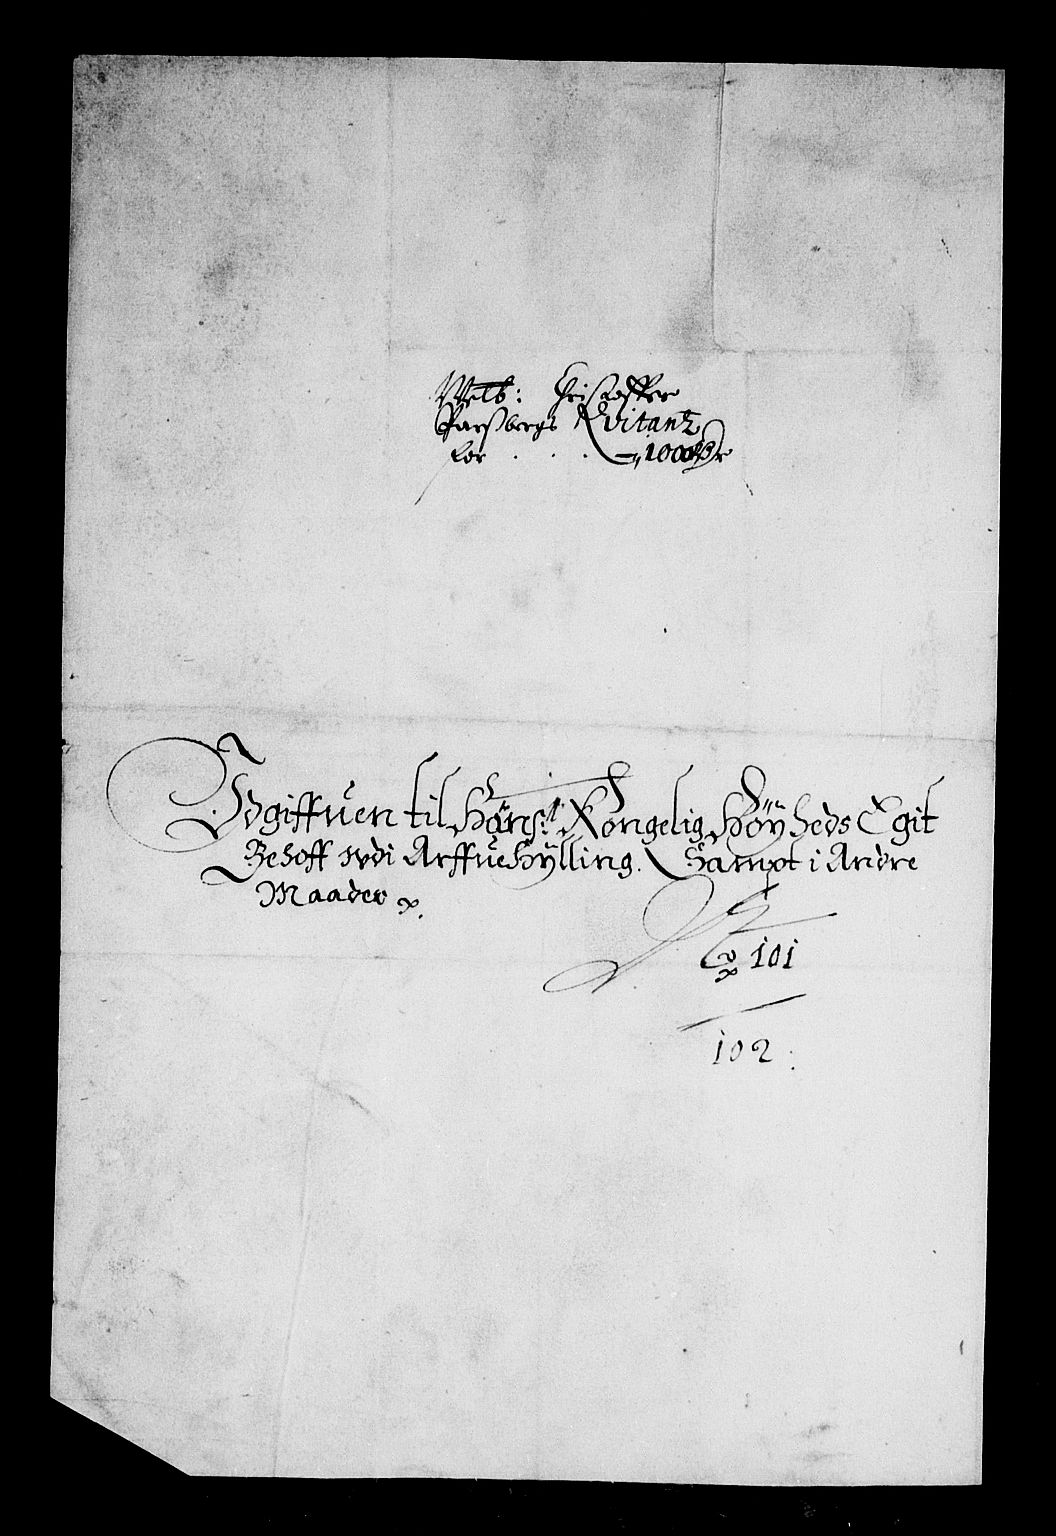 Welb: Christoffer
Parsbergs Qvitantz
for . . . 1000 Rdr
Udgiffuen til Hans Kongelig Høyheds Egit
Behoff udi Arffuehylling. Sampt i Andre
Maader
101
102